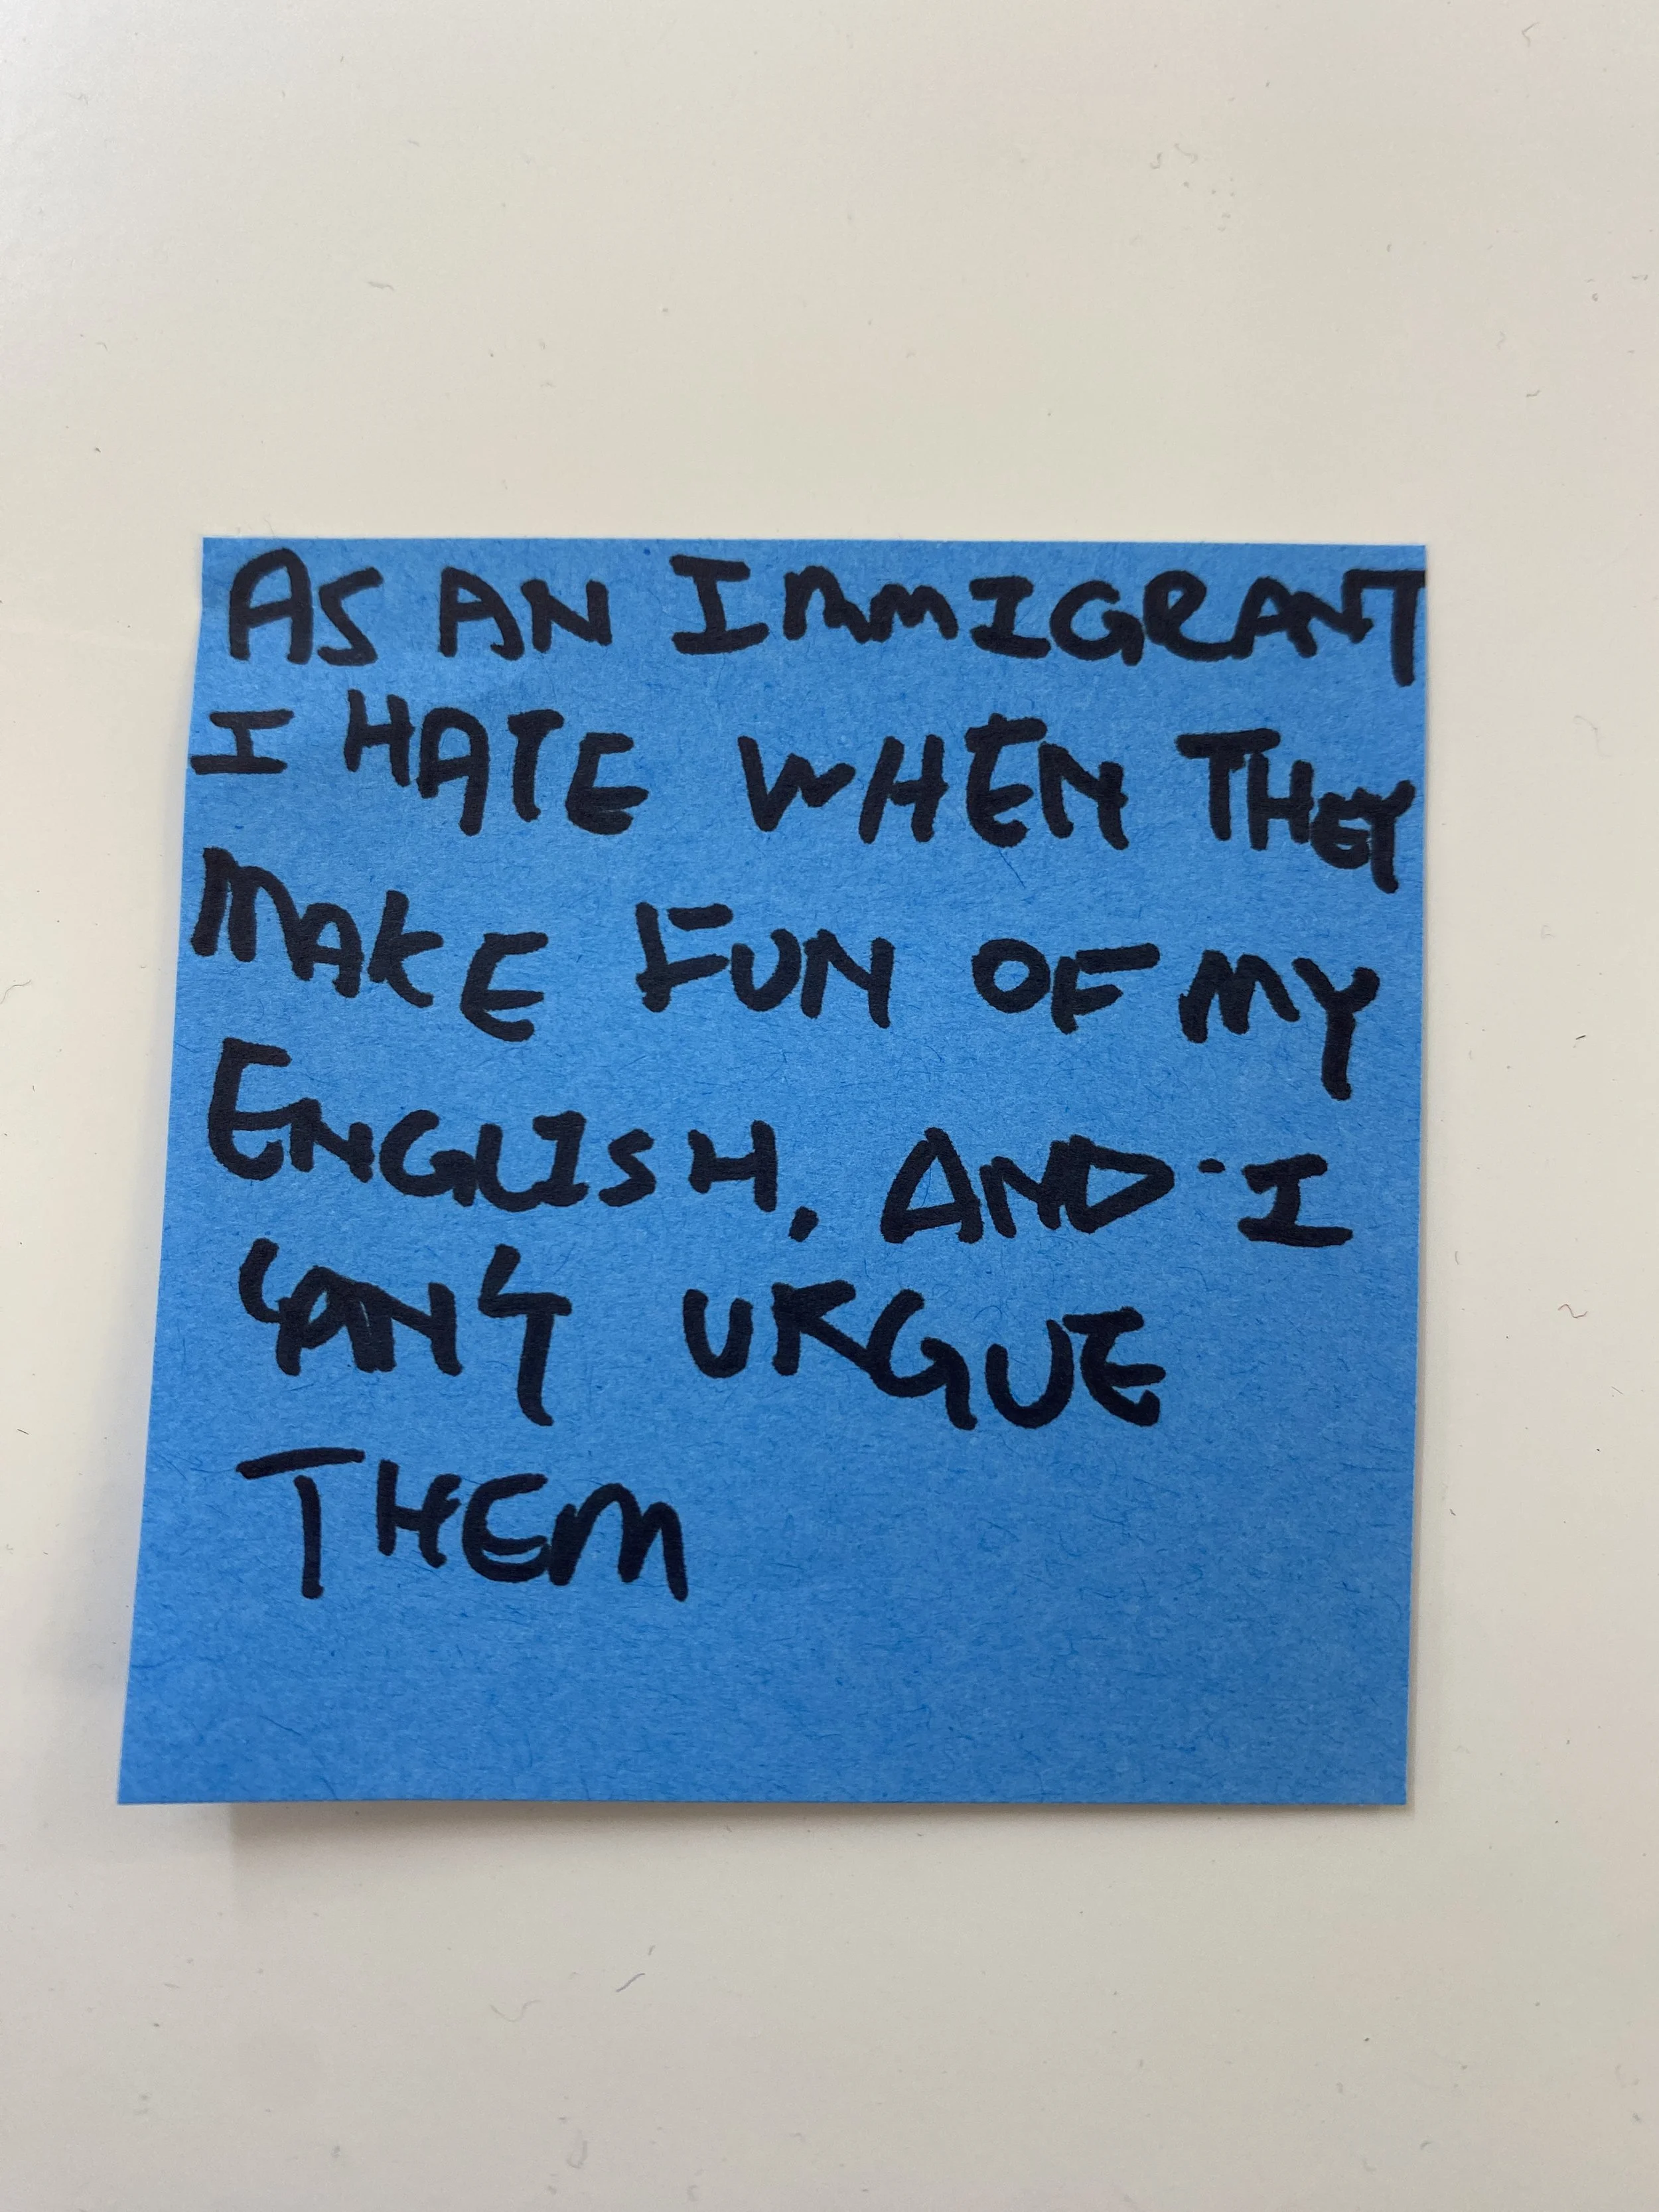 AS AN IMMIGRANT
I HATE WHEN THEY
MAKE FUN OF MY
ENGLISH, AND I
CAN'T URGUE
THEM